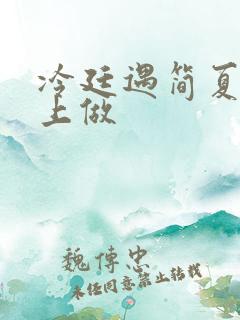 冷廷遇简夏
上做
魏傅忠
未经同意禁止转载